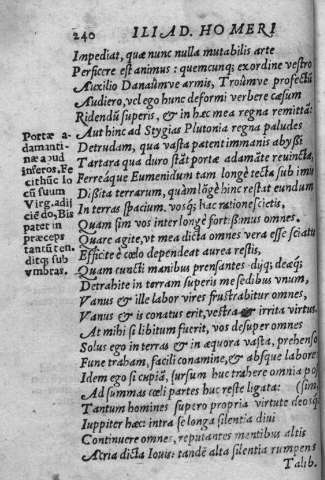 240 ILIAD. HOMERI
Impediat, quæ nunc nulla mutabilis arte
Perficere est animus : quemcunq; ex ordine vestro
Auxilio Danaûmve armis, Troûmve profectũ
Audiero, vel ego hunc deformi verbere cæsum
Ridendũ superis, & in hæc mea regna remittã:
Aut hinc ad Stygias Plutonia regna paludes
Detrudam, qua vasta patent immanis abyssi
Tartara qua duro stãt portæ adamãte revinctæ,
Ferreáque Eumenidum tam longè tecta sub imis
Dißita terrarum, quàm lõgè hinc restat eundum
In terras spacium. vosq; hac ratione scietis,
Quàm sim vos inter longè fortißimus omnes.
Quare agite, vt mea dicta omnes vera esse sciatis
Efficite è cœlo dependeat aurea restis,
Quam cuncti manibus prensantes dijq; deæq;
Detrahite in terram superis me sedibus vnum,
Vanus & ille labor vires frustrabitur omnes,
Vanus & is conatus erit, vestra & irrita virtus.
At mihi si libitum fuerit, vos desuper omnes
Solus ego in terras & in æquora vasta, prehenso
Fune traham, facili conamine, & absque labore
Idem ego si cupiã, sursum huc trahere omnia po
Ad summas cœli partes huc reste ligata: (sim,
Tantum homines supero propria virtute deosq
Iuppiter hæc: intra se longa silentia diui
Continuere omnes, reputantes mentibus altis
Acria dicta Iouis: tandẽ alta silentia rumpens
Talib.
Portæ a-
damanti-
næ apud
inferos, Fe
cithuc lo
cũ suum
Virg. adij
ciẽdo, Bis
patet in
præceps
tantũ ten
ditq; sub
vmbras.